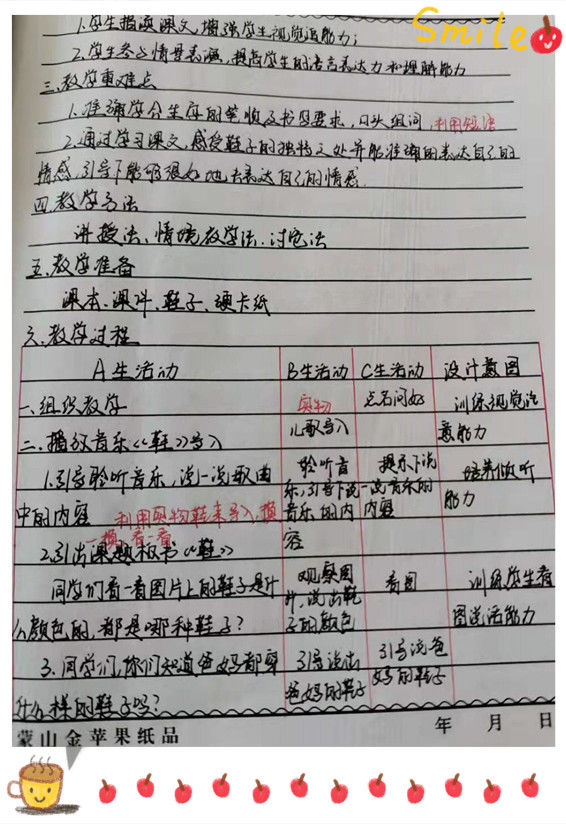 Smile
1.学生指读课文,增强学生视觉注意能力;
2.学生参与情景表演,提高学生的语言表达力和理解能力
三.教学重难点
1.准确学会生字的笔顺及书写要求,口头组词,利用短语
2.通过学习课文,感受鞋子的独特之处并能准确的表达自己的
情感,引导下能够很好地去表达自己的情感.
四.教学方法
讲授法、情境教学法.讨论法
五.教学准备
课本、课件、鞋子、硬卡纸
六.教学过程
A生活动 B生活动 C生活动 设计意图
一.组织教学 实物 点名问好 训练视觉注
儿歌导入 意能力
二.播放音乐《鞋》导入
1.引导聆听音乐,说一说歌曲 聆听音 提示下说 培养倾听
乐,引导下说一说音乐的
中的内容 利用实物鞋来导入,摸 音乐的内 内容 能力
一摸,看一看 容
2.引出课题板书《鞋》
同学们看一看图片上的鞋子是什 观察图 看图 训练学生看
片,说出鞋 图说话能力
么颜色的,都是哪种鞋子? 子的颜色
3.同学们,你们知道爸妈都穿 引导说出 引导说爸
爸妈的鞋子 妈的鞋子
什么样的鞋子吗?
蒙山金苹果纸品 年 月 日